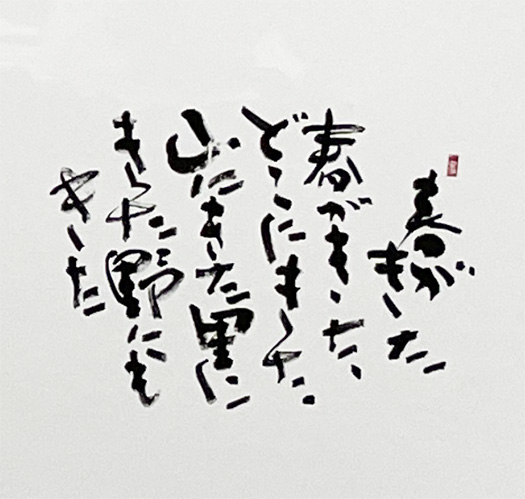 春が
きた
春がきた、
どこにきた。
山にきた里に
きた野にも
きた